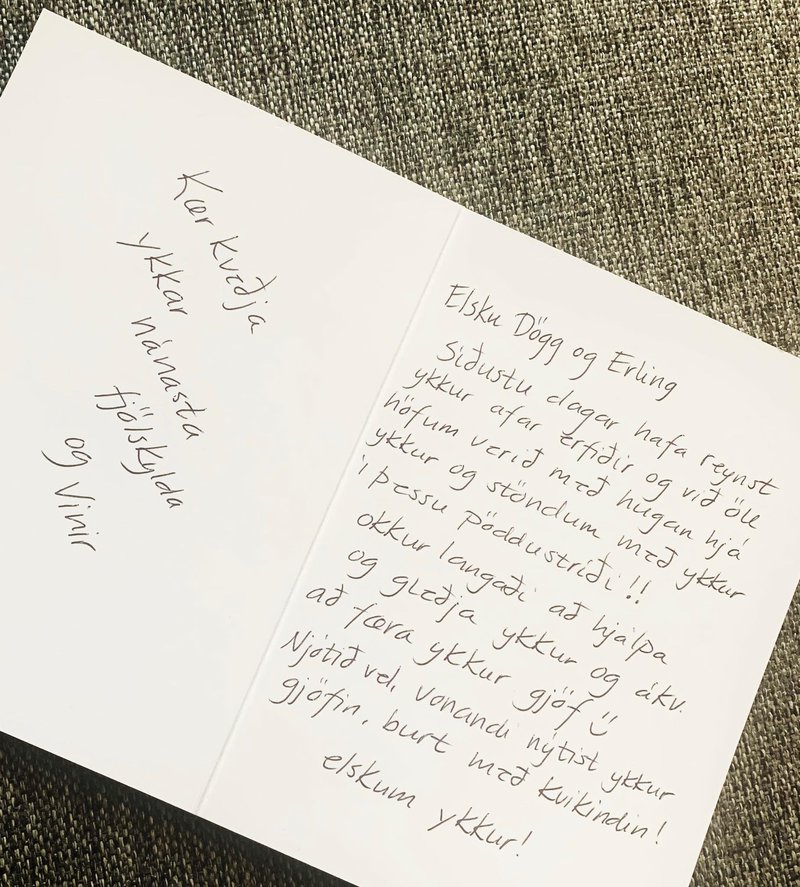 Kær kveðja
ykkar
nánasta
fjölskylda
og vinir
Elsku Dögg og Erling
Síðustu dagar hafa reynst
ykkur afar erfiðir og við öll
höfum verið með hugan hjá
ykkur og stöndum með ykkur
í þessu pöddustríði!!
okkur langaði að hjálpa
og gleðja ykkur og ákv.
að færa ykkur gjöf :)
Njótið vel, vonandi nýtist ykkur
gjöfin, burt með kvikindin!
elskum ykkur!